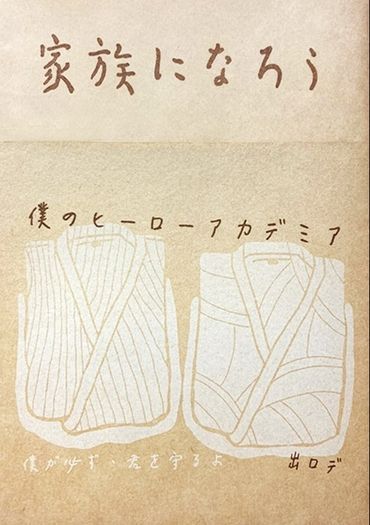 家族になろう
僕のヒーローアカデミア
僕が必ず、君を守るよ
出口デ